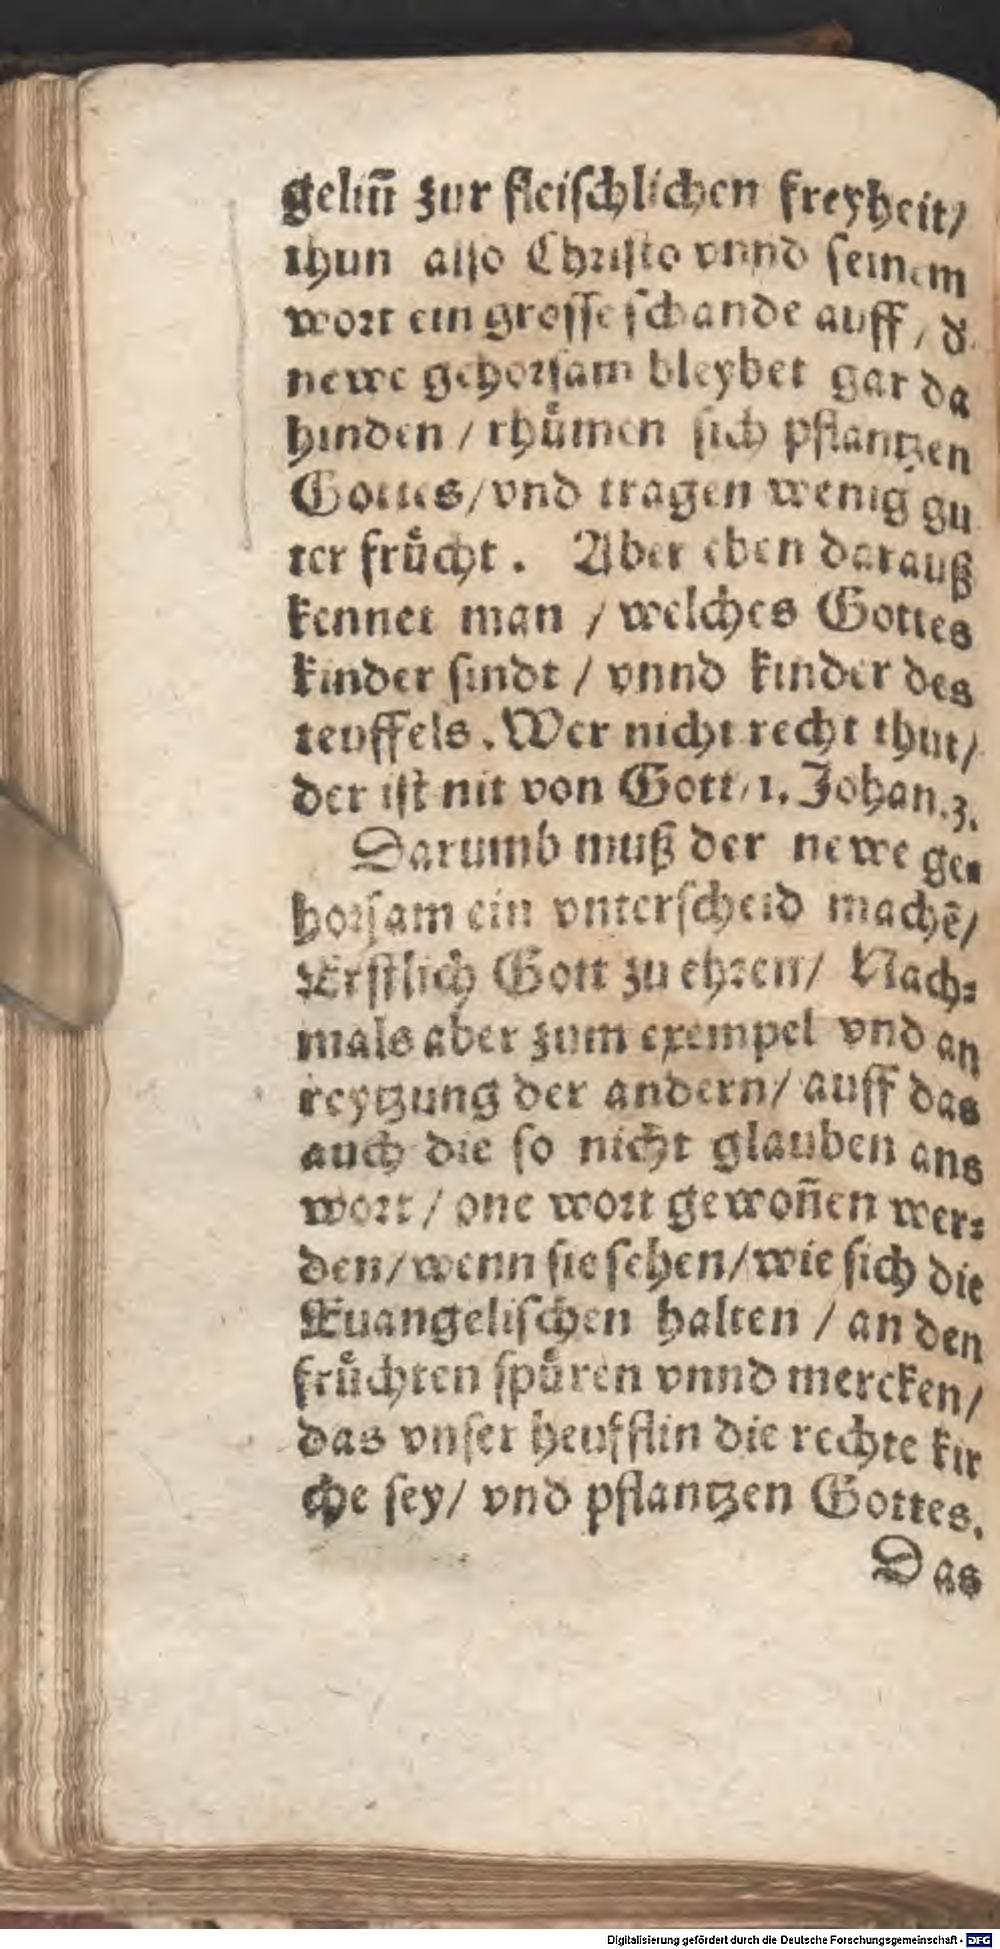 geliũ zur fleiſchlichen freyheit/
thun alſo Chriſto vnnd ſeinem
wort ein groſſe ſchande auff / d̕
newe gehorſam bleybet gar da
hinden / rhuͤmen ſich pflantzen
Gottes/vnd tragen wenig gu
ter fruͤcht . Aber eben darauß
kennet man / welches Gottes
kinder ſindt / vnnd kinder des
teuffels. Wer nicht recht thut/
der iſt nit von Gott/1. Johan.3.
Darumb muß der newe ge-
horſam ein vnterſcheid machē/
Erſtlich Gott zu ehren/ Nach-
mals aber zum exempel vnd an
reytzung der andern/ auff das
auch die ſo nicht glauben ans
wort / one wort gewon̄en wer-
den/wenn ſie ſehen/wie ſich die
Euangeliſchen halten / an den
fruͤchten ſpuͤren vnnd mercken/
das vnſer heufflin die rechte kir
che ſey/ vnd pflantzen Gottes.
Das
Digitalisierung gefördert durch die Deutsche Forschungsgemeinschaft - DFG